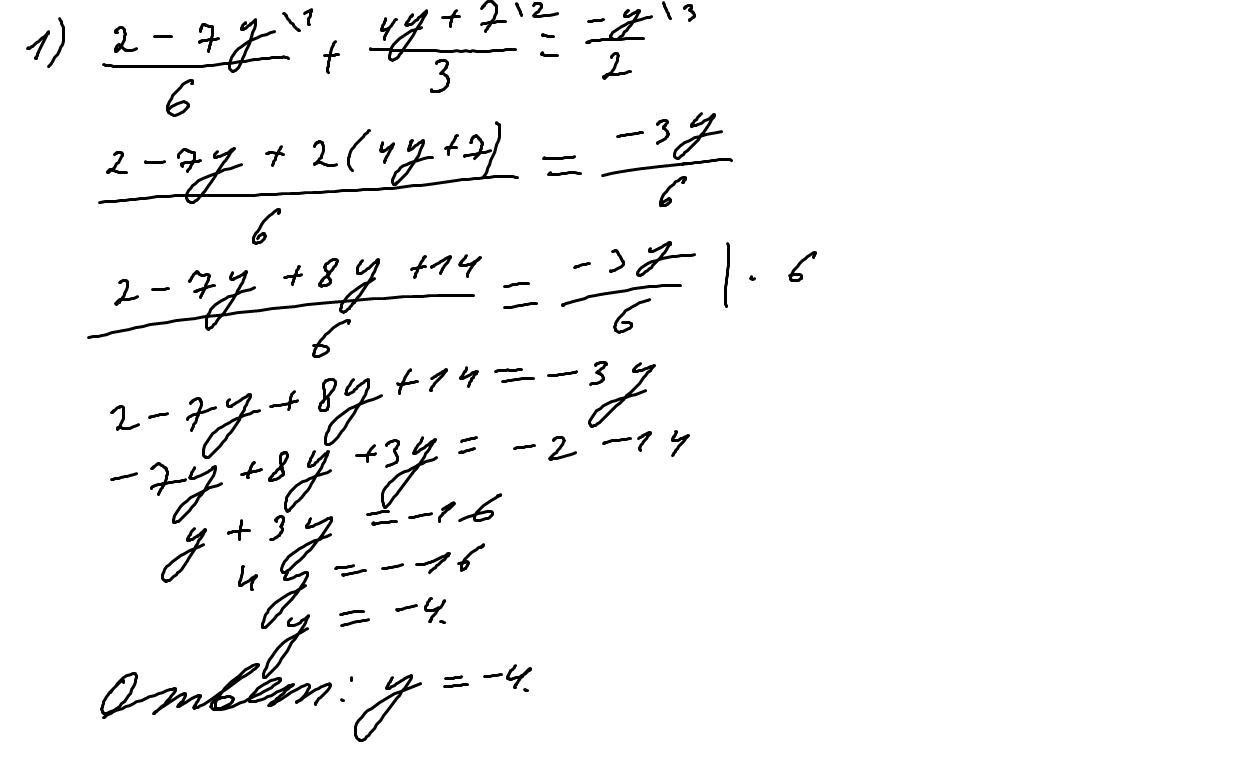 1) \frac{2 - 7y^{\backslash 1}}{6} + \frac{4y + 7^{\backslash 2}}{3} = \frac{-y^{\backslash 3}}{2}
\frac{2 - 7y + 2(4y + 7)}{6} = \frac{-3y}{6}
\frac{2 - 7y + 8y + 14}{6} = \frac{-3y}{6} | · 6
2 - 7y + 8y + 14 = -3y
-7y + 8y + 3y = -2 - 14
y + 3y = -16
4y = -16
y = -4.
Ответ: y = -4.